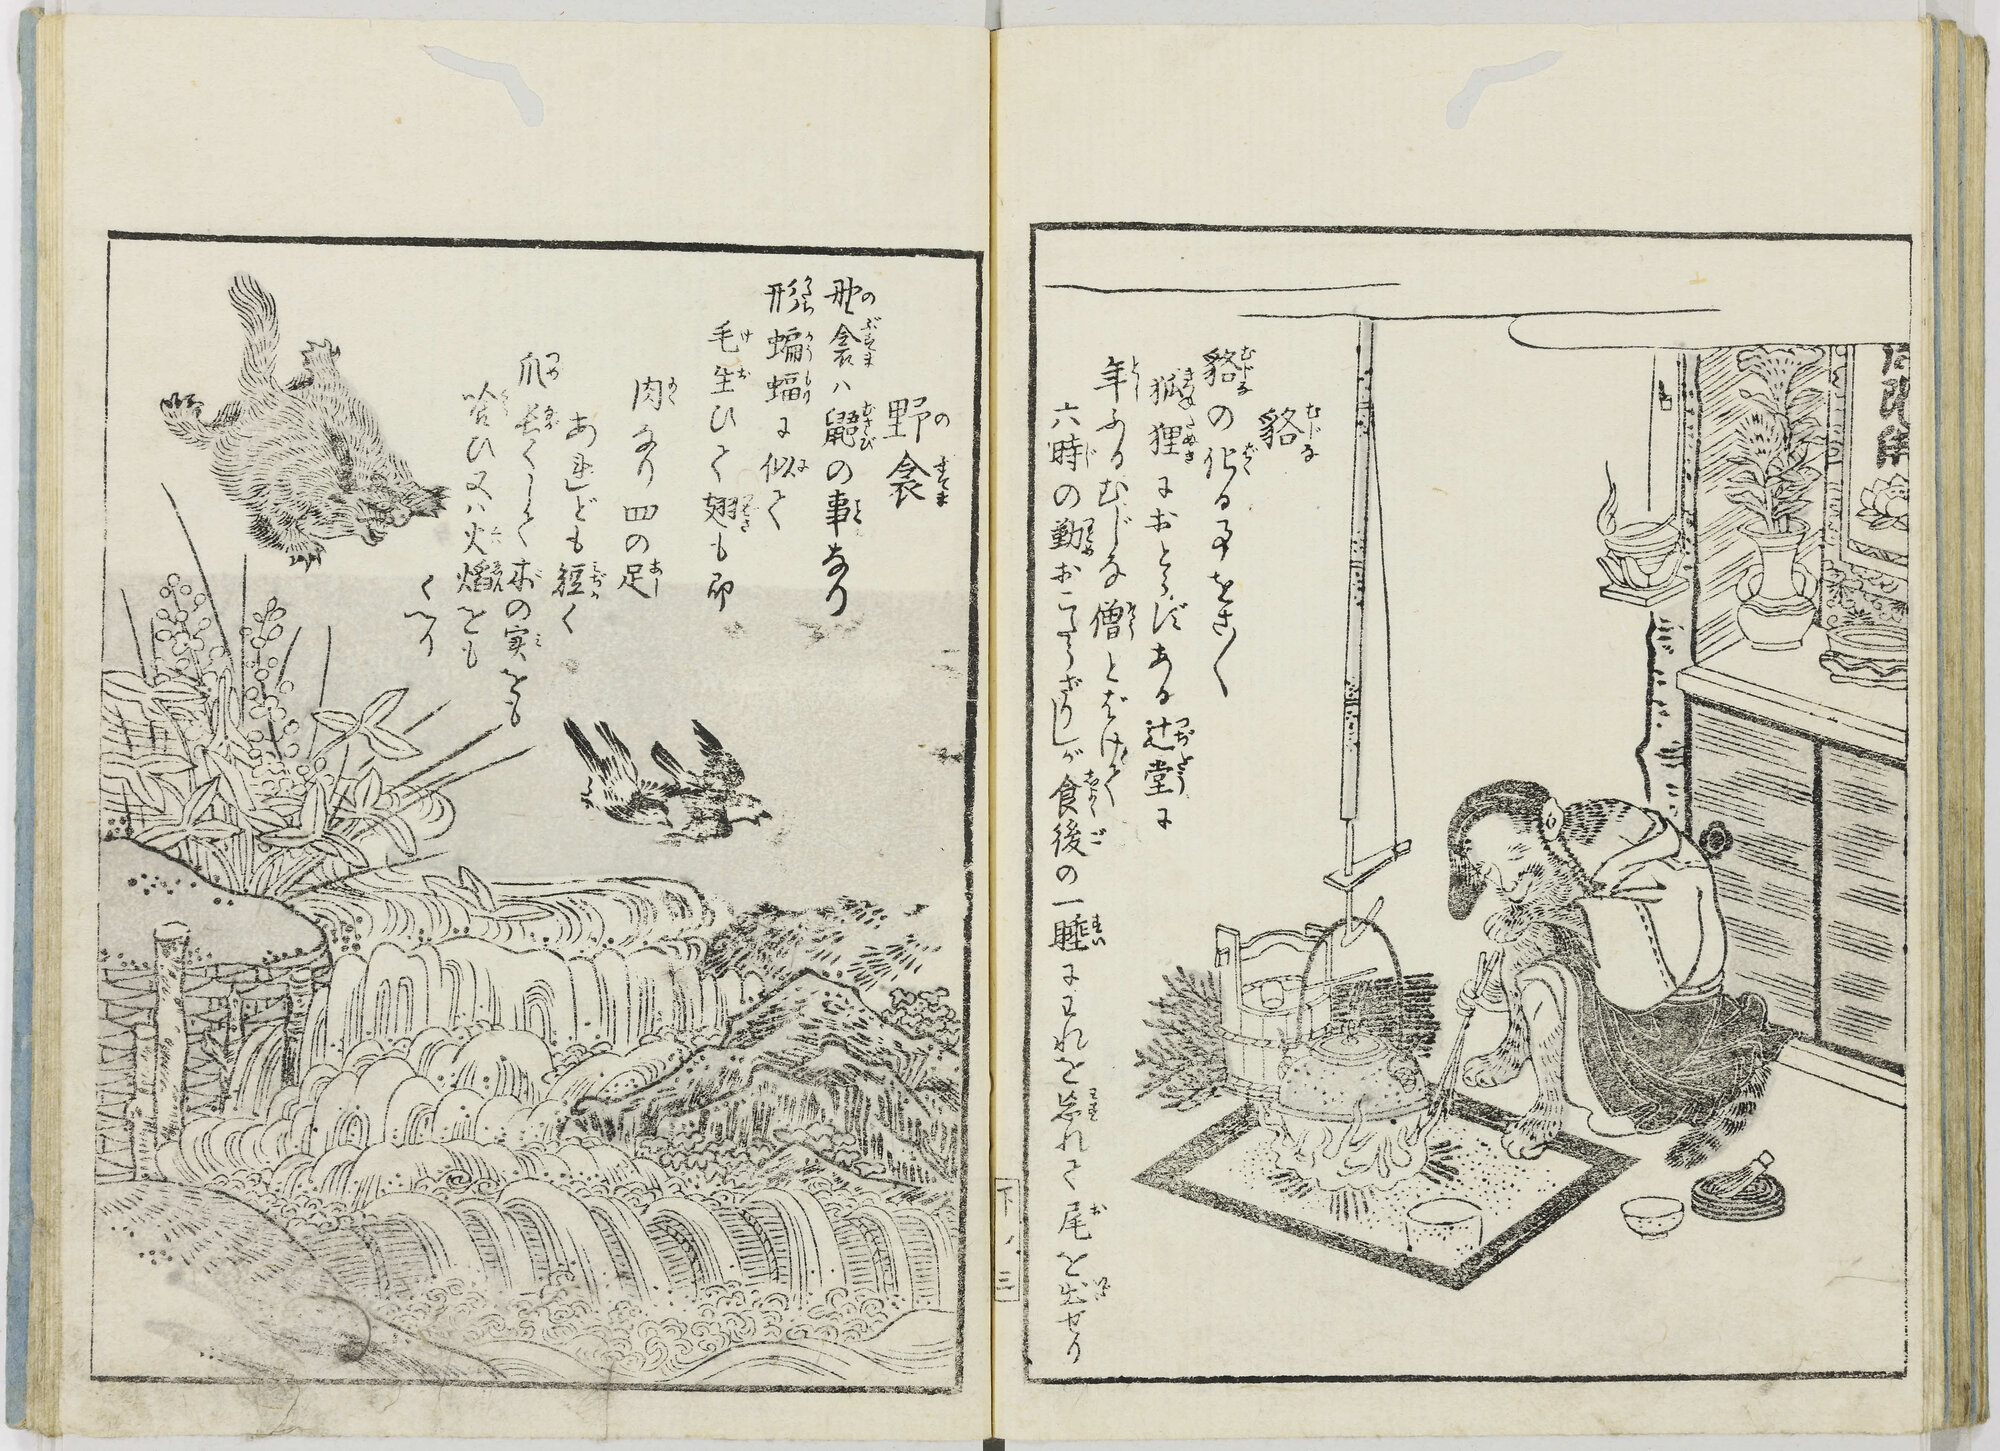 貉
貉の化る事をさ〳〵
狐狸におとらずある辻堂に
年ふるむじな僧とばけて
六時の勤おこたらざりしが食後の一睡にわれを忘れて尾を出せり
野衾
野衾ハ鼯の事なり
形蝙蝠に似て
毛生ひて翅も即
肉なり四の足
あれども短く
爪長くして木の実をも
喰ひ又ハ火焔をも
くへり